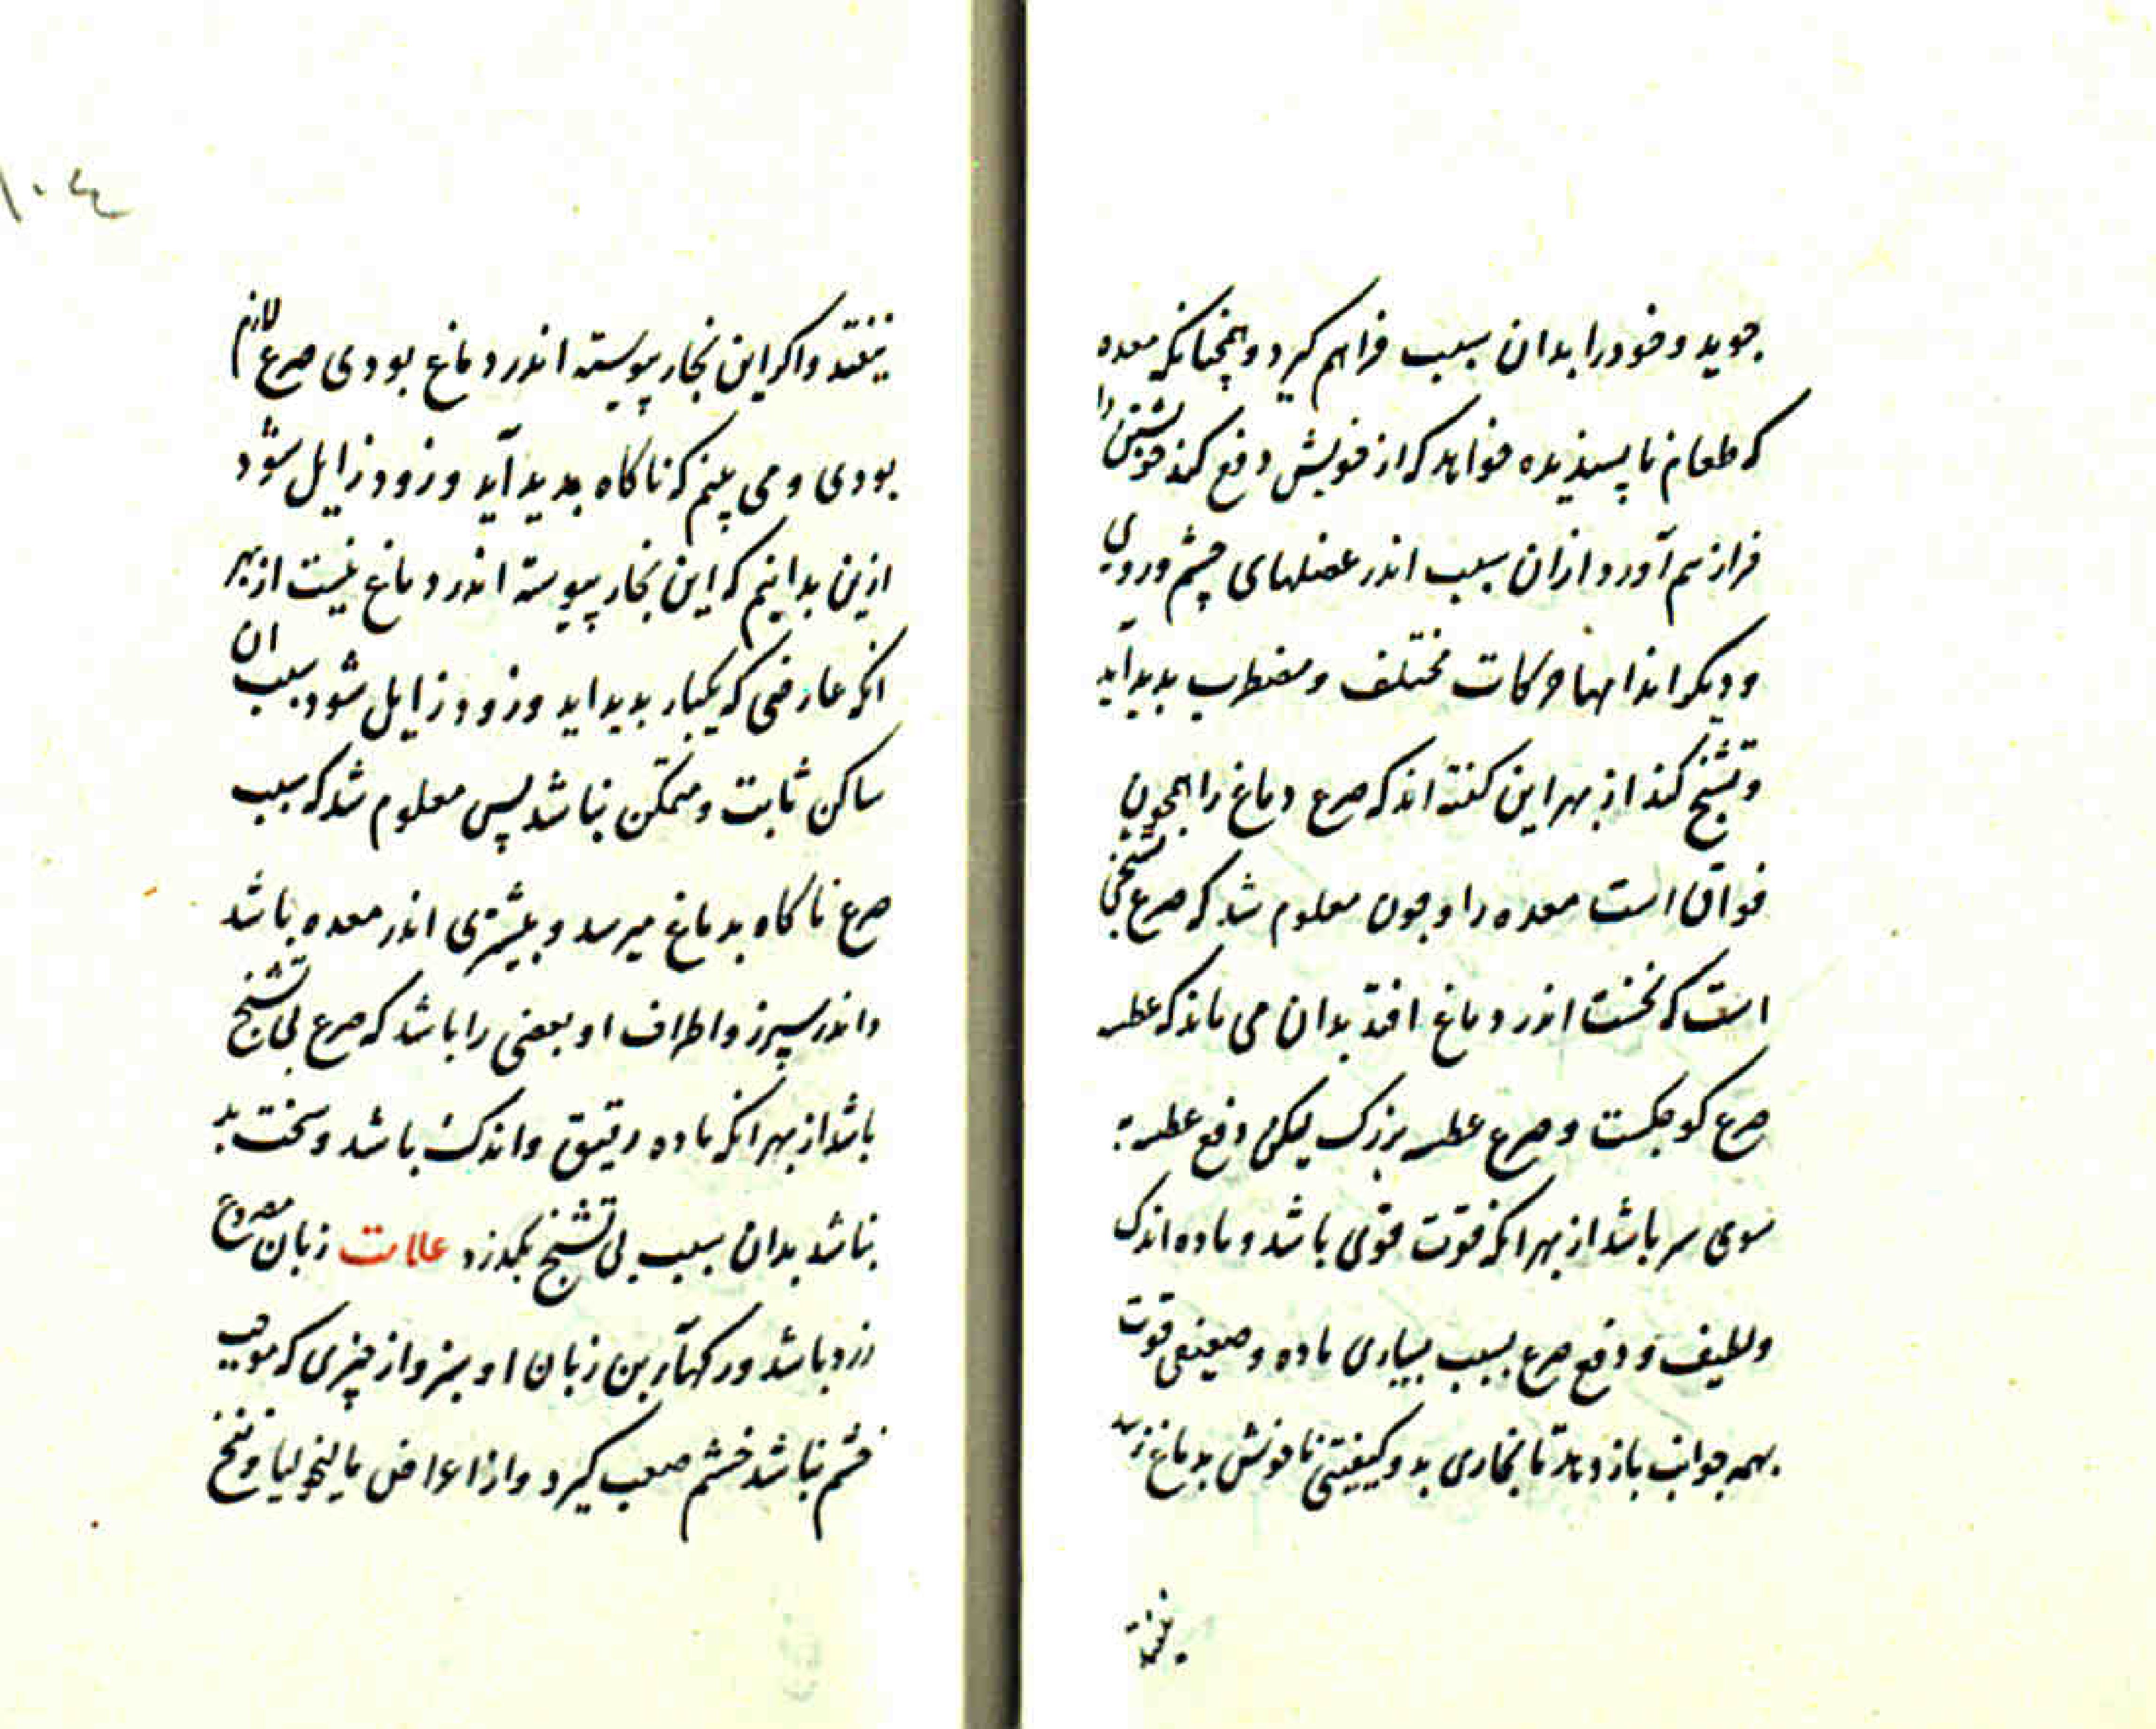 جوید و خود را بدان سبب فراهم کیرد و همچنانکه معده
که طعام ناپسندیده خواهد که از خویش دفع کند خویشتن را
فراز هم آورد و ازان سبب اندر عضلهای چشم و روی
و دیکر اندامها حرکات مختلف و مضطرب بدید آید
و تشنج کند از بهر این کفته اند که صرع دماغ را همچون
فواق است معده را و چون معلوم شد که صرع تشنجی
است که نخست اندر دماغ افتد بدان می ماند که عطسه
صرع کوچکست و صرع عطسه بزرک لیکن دفع عطسه
سوی سر باشد از بهر انکه قوت قوی باشد و ماده اندک
و لطیف و دفع صرع بسبب بسیاری ماده و ضعیفی قوت
بهمه جوانب باز دهد تا بخاری بد و کیفیتی ناخوش بدماغ نرسد
نیفتد
۱۰۴
نیفتد و اکر این بخار پیوسته اندر دماغ بودی صرع لازم
بودی و می بینم که ناکاه بدید آید و زود زایل شود
ازین بدانیم که این بخار پیوسته اندر دماغ نیست از بهر
انکه عارضی که یکبار بدید اید و زود زایل شود سبب ان
ساکن ثابت و متمکن نباشد پس معلوم شد که سبب
صرع ناکاه بدماغ میرسد و بیشتری اندر معده باشد
و اندر سپرز و اطراف او بعضی را باشد که صرع بی تشنج
باشد از بهر انکه ماده رقیق و اندک باشد و سخت بد
نباشد بدان سبب بی تشنج بکذرد علامات زبان مصروع
زرد باشد و رکهآء بن زبان او سبز و از چیزی که موجب
خشم نباشد خشم صعب کیرد و از اعراض مالیخولیا و نفخ